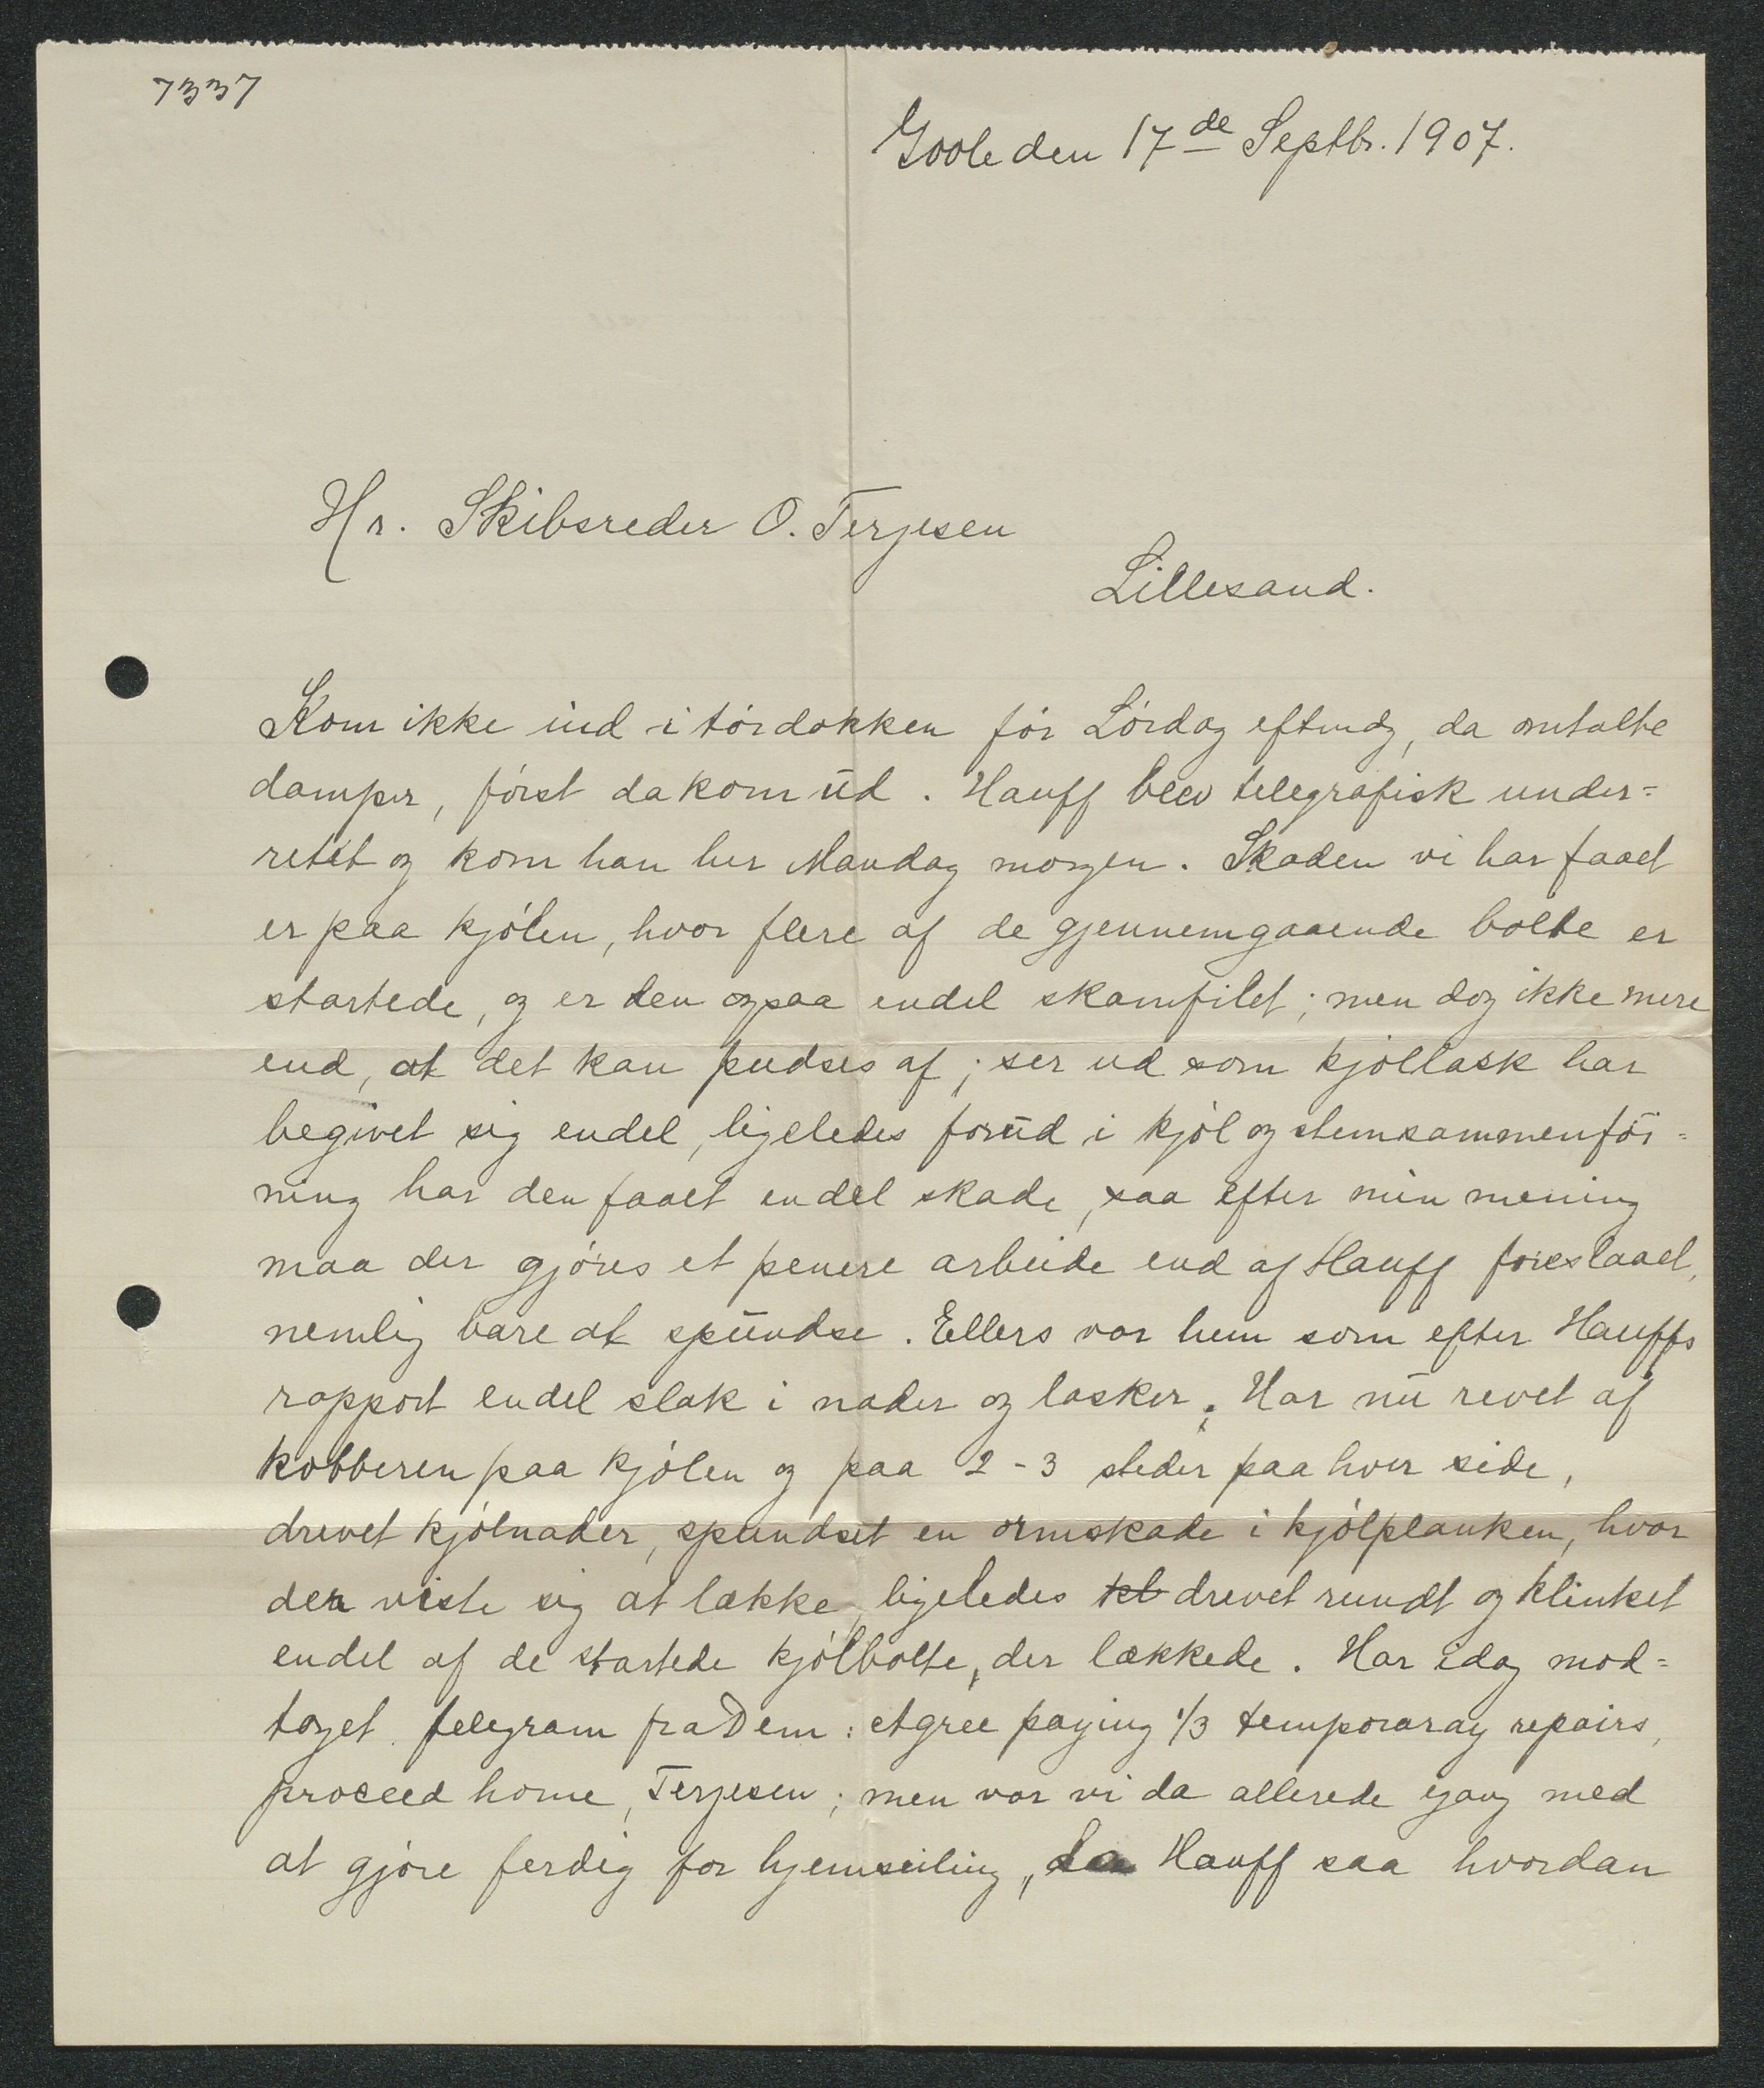 7337
Goole den 17de Septbr. 1907.
Hr. Skibsreder O. Terjesen
Lillesand.
Kom ikke ind i tördokken för Lördag eftmdg, da omtalte
damper, först da kom ud. Hauff blev telegrafisk under=
rettet og kom han her Mandag morgen. Skaden vi har faaet
er paa kjölen, hvor flere af de gjennemgaaende bolte er
startede, og er den ogsaa endel skamfilet; men dog ikke mere
end, at det kan pudses af; ser ud som kjöllask har
begivet sig endel, ligeledes forud i kjöl og stemsammenför=
ning har den faaet endel skade, saa efter min mening
maa der gjöres et penere arbeide end af Hauff foreslaaet,
nemlig bare at spundse. Ellers var hun som efter Hauffs
rapport endel slak i nader og lasker. Har nu revet af
kobberen paa kjölen og paa 2-3 steder paa hver side,
drevet kjölnader, spundset en ormskade i kjölplanken, hvor
den viste sig at lække, ligeledes kl drevet rundt og klinket
endel af de startede kjölbolte, der lækkede. Har idag mod=
taget telegram fra Dem: Agree paying 1/3 temporaray repairs,
proceed home, Terjesen; men var vi da allerede igang med
at gjöre ferdig for hjemseiling, da Hauff saa hvordan